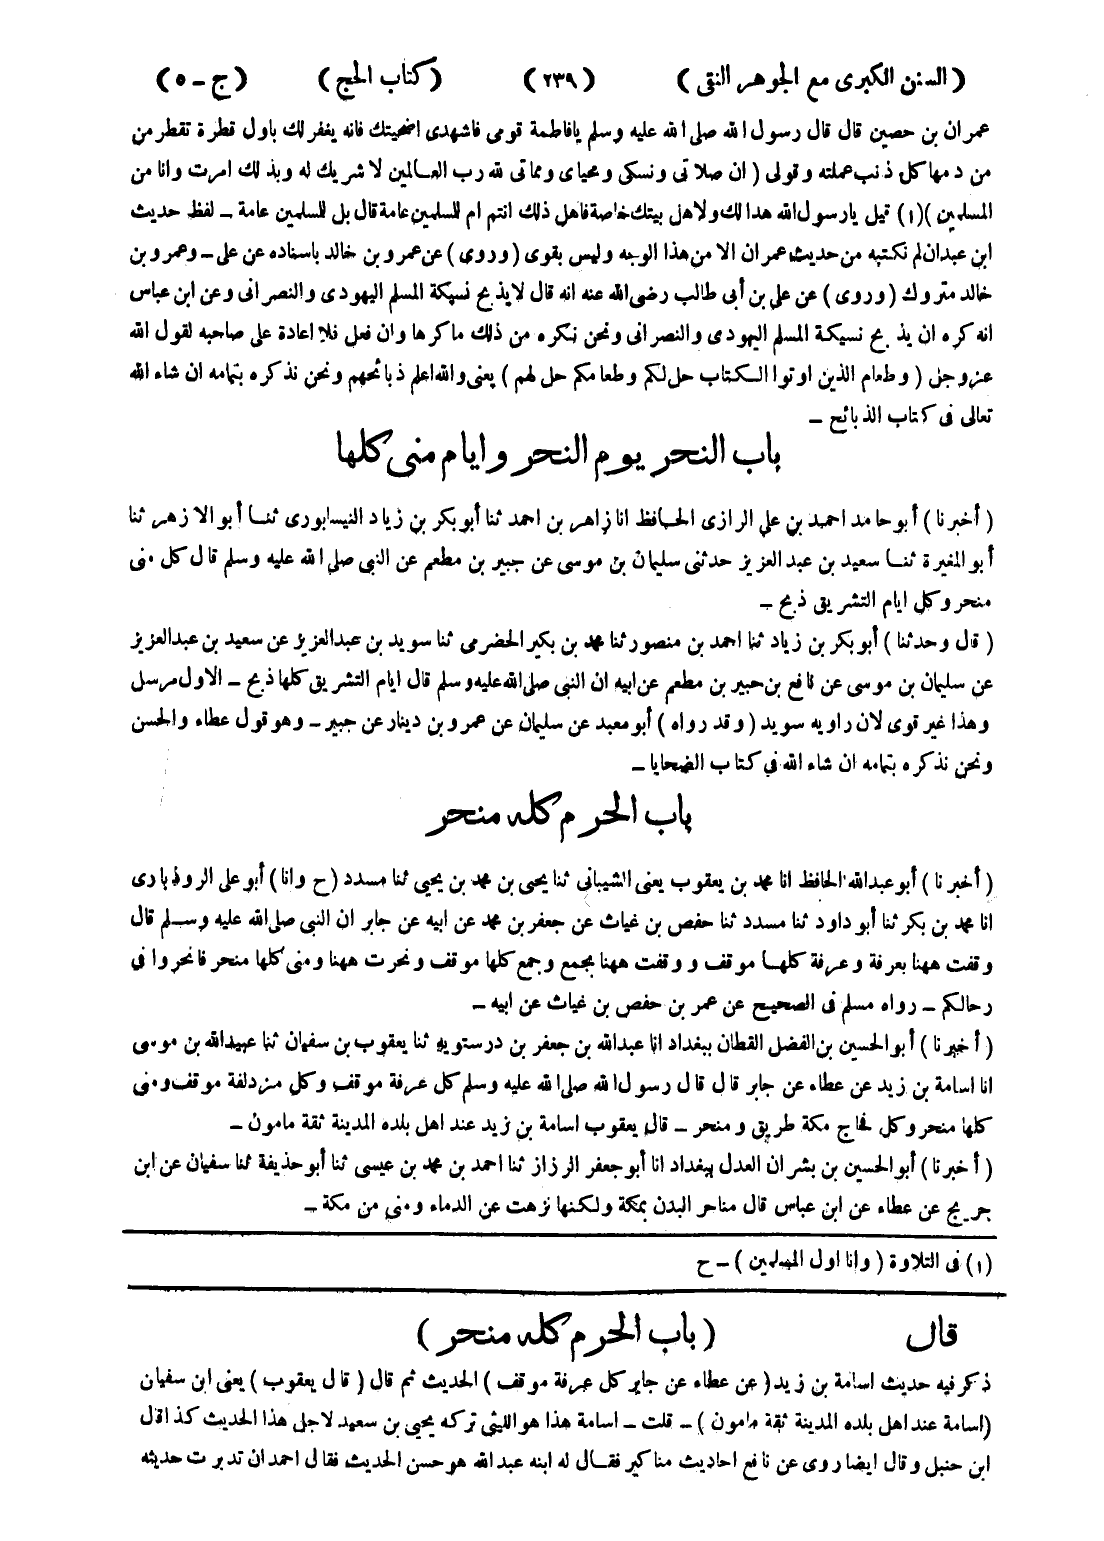 (السنن الكبرى مع الجوهر النقى) (٢٣٩) (كتاب الحج) (ج - ٥)
عمران بن حصين قال قال رسول الله صلى الله عليه وسلم يافاطمة قومى فاشهدى اضحيتك فانه يغفر لك باول قطرة تقطر من
من دمها كل ذنب عملته وقولى (ان صلاتى ونسكى ومحياى ومماتى لله رب العالمين لا شريك له وبذلك امرت وانا من
المسلمين)(١) قيل يارسول الله هذا لك ولاهل بيتك خاصة فاهل ذلك انتم ام للمسلمين عامة قال بل للمسلمين عامة - لفظ حديث
ابن عبدان لم نكتبه من حديث عمران الا من هذا الوجه وليس بقوى (وروى) عن عمرو بن خالد باسناده عن على - وعمرو بن
خالد متروك (وروى) عن على بن أبى طالب رضى الله عنه انه قال لايذبح نسيكة المسلم اليهودى والنصرانى وعن ابن عباس
انه كره ان يذبح نسيكة المسلم اليهودى والنصرانى ونحن نكره من ذلك ماكرها وان فعل فلا اعادة على صاحبه لقول الله
عزوجل (وطعام الذين اوتوا الكتاب حل لكم وطعامكم حل لهم) يعنى والله اعلم ذبائحهم ونحن نذكره بتمامه ان شاء الله
تعالى فى كتاب الذبائح -
باب النحر يوم النحر وايام منى كلها
(أخبرنا) أبو حامد احمد بن على الرازى الحافظ انا زاهر بن احمد ثنا أبو بكر بن زياد النيسابورى ثنا أبو الازهر ثنا
أبو المغيرة ثنا سعيد بن عبد العزيز حدثنى سليمان بن موسى عن جبير بن مطعم عن النبى صلى الله عليه وسلم قال كل منى
منحر وكل ايام التشريق ذبح -
(قال وحدثنا) أبو بكر بن زياد ثنا احمد بن منصور ثنا محمد بن بكير الحضرمى ثنا سويد بن عبدالعزيز عن سعيد بن عبدالعزيز
عن سليمان بن موسى عن نافع بن جبير بن مطعم عن ابيه ان النبى صلى الله عليه وسلم قال ايام التشريق كلها ذبح - الاول مرسل
وهذا غير قوى لان راويه سويد (وقد رواه) أبو معبد عن سليمان عن عمرو بن دينار عن جبير - وهو قول عطاء والحسن
ونحن نذكره بتمامه ان شاء الله فى كتاب الضحايا -
باب الحرم كله منحر
(أخبرنا) أبو عبدالله الحافظ انا محمد بن يعقوب يعنى الشيبانى ثنا يحيى بن محمد بن يحيى ثنا مسدد (ح وانا) أبو على الروذبارى
انا محمد بن بكر ثنا أبو داود ثنا مسدد ثنا حفص بن غياث عن جعفر بن محمد عن ابيه عن جابر ان النبى صلى الله عليه وسلم قال
وقفت ههنا بعرفة وعرفة كلها موقف ووقفت ههنا بجمع وجمع كلها موقف ونحرت ههنا ومنى كلها منحر فانحروا فى
رحالكم - رواه مسلم فى الصحيح عن عمر بن حفص بن غياث عن ابيه -
(أخبرنا) أبو الحسين بن الفضل القطان ببغداد انا عبدالله بن جعفر بن درستويه ثنا يعقوب بن سفيان ثنا عبيدالله بن موسى
انا اسامة بن زيد عن عطاء عن جابر قال قال رسول الله صلى الله عليه وسلم كل عرفة موقف وكل مزدلفة موقف ومنى
كلها منحر وكل فجاج مكة طريق ومنحر - قال يعقوب اسامة بن زيد عند اهل بلده المدينة ثقة مامون -
(أخبرنا) أبو الحسين بن بشران العدل ببغداد انا أبو جعفر الرزاز ثنا احمد بن محمد بن عيسى ثنا أبو حذيفة ثنا سفيان عن ابن
جريج عن عطاء عن ابن عباس قال مناحر البدن بمكة ولكنها نزهت عن الدماء ومنى من مكة -
(١) فى التلاوة (وانا اول المسلمين) - ح
قال (باب الحرم كله منحر)
ذكر فيه حديث اسامة بن زيد (عن عطاء عن جابر كل عرفة موقف) الحديث ثم قال (قال يعقوب) يعنى ابن سفيان
(اسامة عند اهل بلده المدينة ثقة مامون) - قلت - اسامة هذا هو الليثى تركه يحيى بن سعيد لاجل هذا الحديث كذا قال
ابن حنبل وقال ايضا روى عن نافع احاديث مناكير فقال له ابنه عبد الله هو حسن الحديث فقال احمد ان تدبرت حديثه